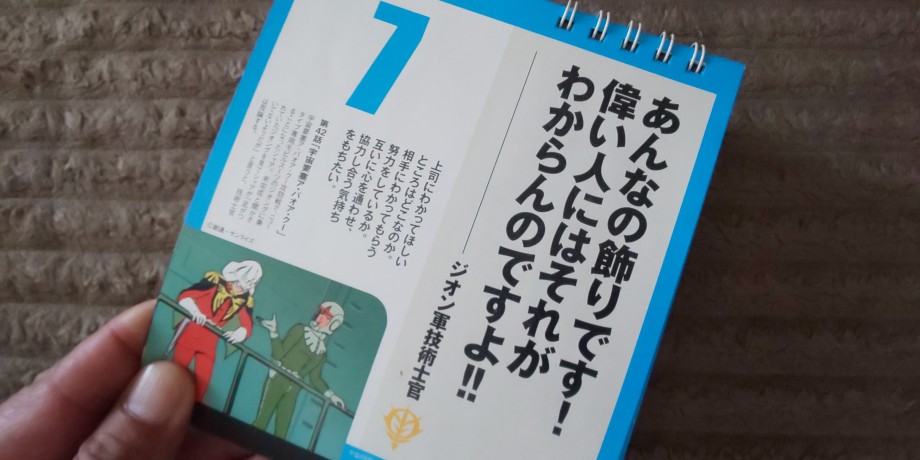 あんなの飾りです!
偉い人にはそれが
わからんのですよ!!
ジオン軍技術士官
7
上司にわかってほしい
ところはどこなのか。
相手にわかってもらう
努力をしているか。
互いに心を通わせ、
協力し合う気持ち
をもちたい。
第42話「宇宙要塞ア・バオア・クー」
©創通・サンライズ